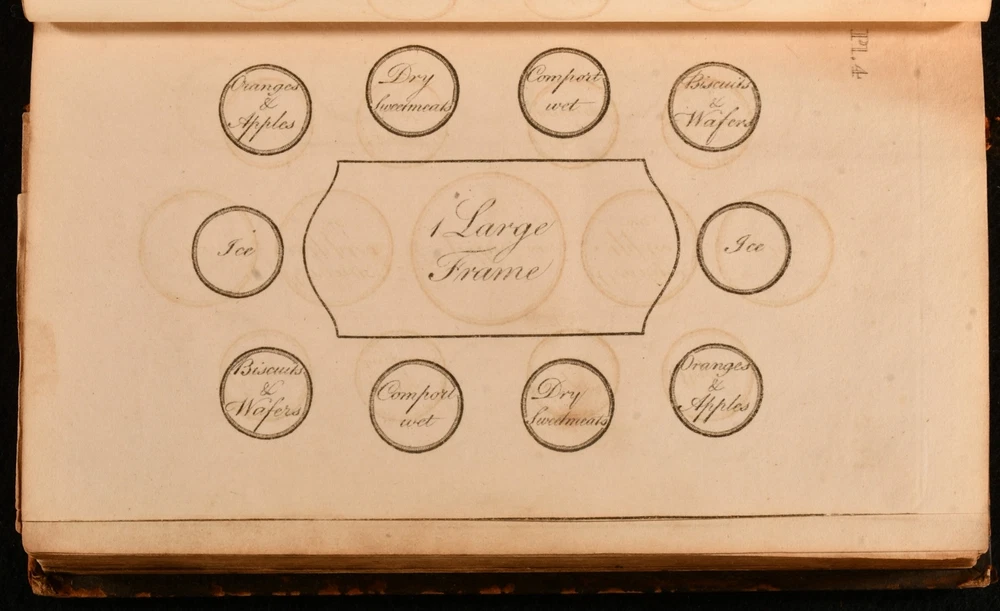 Pl. 4
Oranges
&
Apples
Dry
Sweetmeats
Comport
wet
Biscuits
&
Wafers
Ice
1 Large
Frame
Ice
Biscuits
&
Wafers
Comport
wet
Dry
Sweetmeats
Oranges
&
Apples